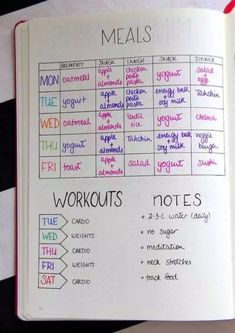 MEALS
BREAKFAST SNACK LUNCH SNACK DINNER
MON oatmeal apple + almonds chicken pesto pasta yogurt salad + eggs
TUE yogurt apple + almonds chicken pesto pasta energy ball + soy milk Tahchin
WED oatmeal apple + almonds lentil rice yogurt chana
THU yogurt apple + almonds Tahchin energy ball + soy milk veggie burger
FRI toast apple + almonds salad yogurt sushi
WORKOUTS
TUE CARDIO
WED WEIGHTS
THU CARDIO
FRI WEIGHTS
SAT CARDIO
NOTES
• 2-3 L water (daily)
• no sugar
• meditation
• neck stretches
• track food